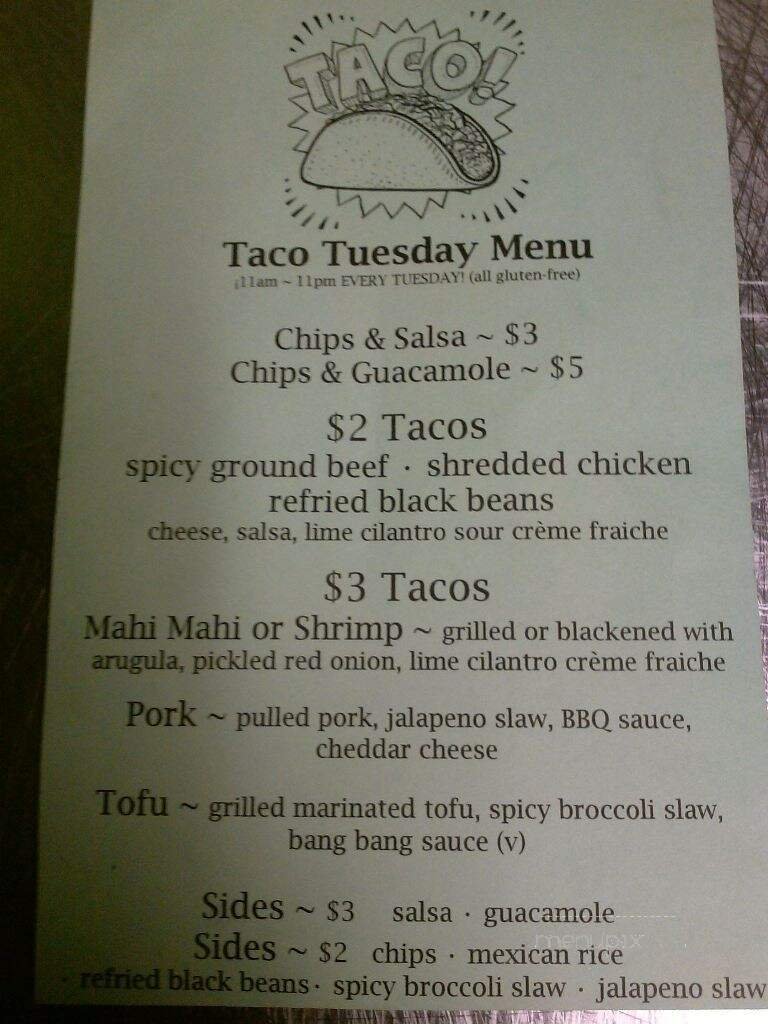 TACO!
Taco Tuesday Menu
¡11am ~ 11pm EVERY TUESDAY! (all gluten-free)
Chips & Salsa ~ $3
Chips & Guacamole ~ $5
$2 Tacos
spicy ground beef · shredded chicken
refried black beans
cheese, salsa, lime cilantro sour crème fraiche
$3 Tacos
Mahi Mahi or Shrimp ~ grilled or blackened with
arugula, pickled red onion, lime cilantro crème fraiche
Pork ~ pulled pork, jalapeno slaw, BBQ sauce,
cheddar cheese
Tofu ~ grilled marinated tofu, spicy broccoli slaw,
bang bang sauce (v)
Sides ~ $3 salsa · guacamole
menupix
Sides ~ $2 chips · mexican rice
· refried black beans · spicy broccoli slaw · jalapeno slaw